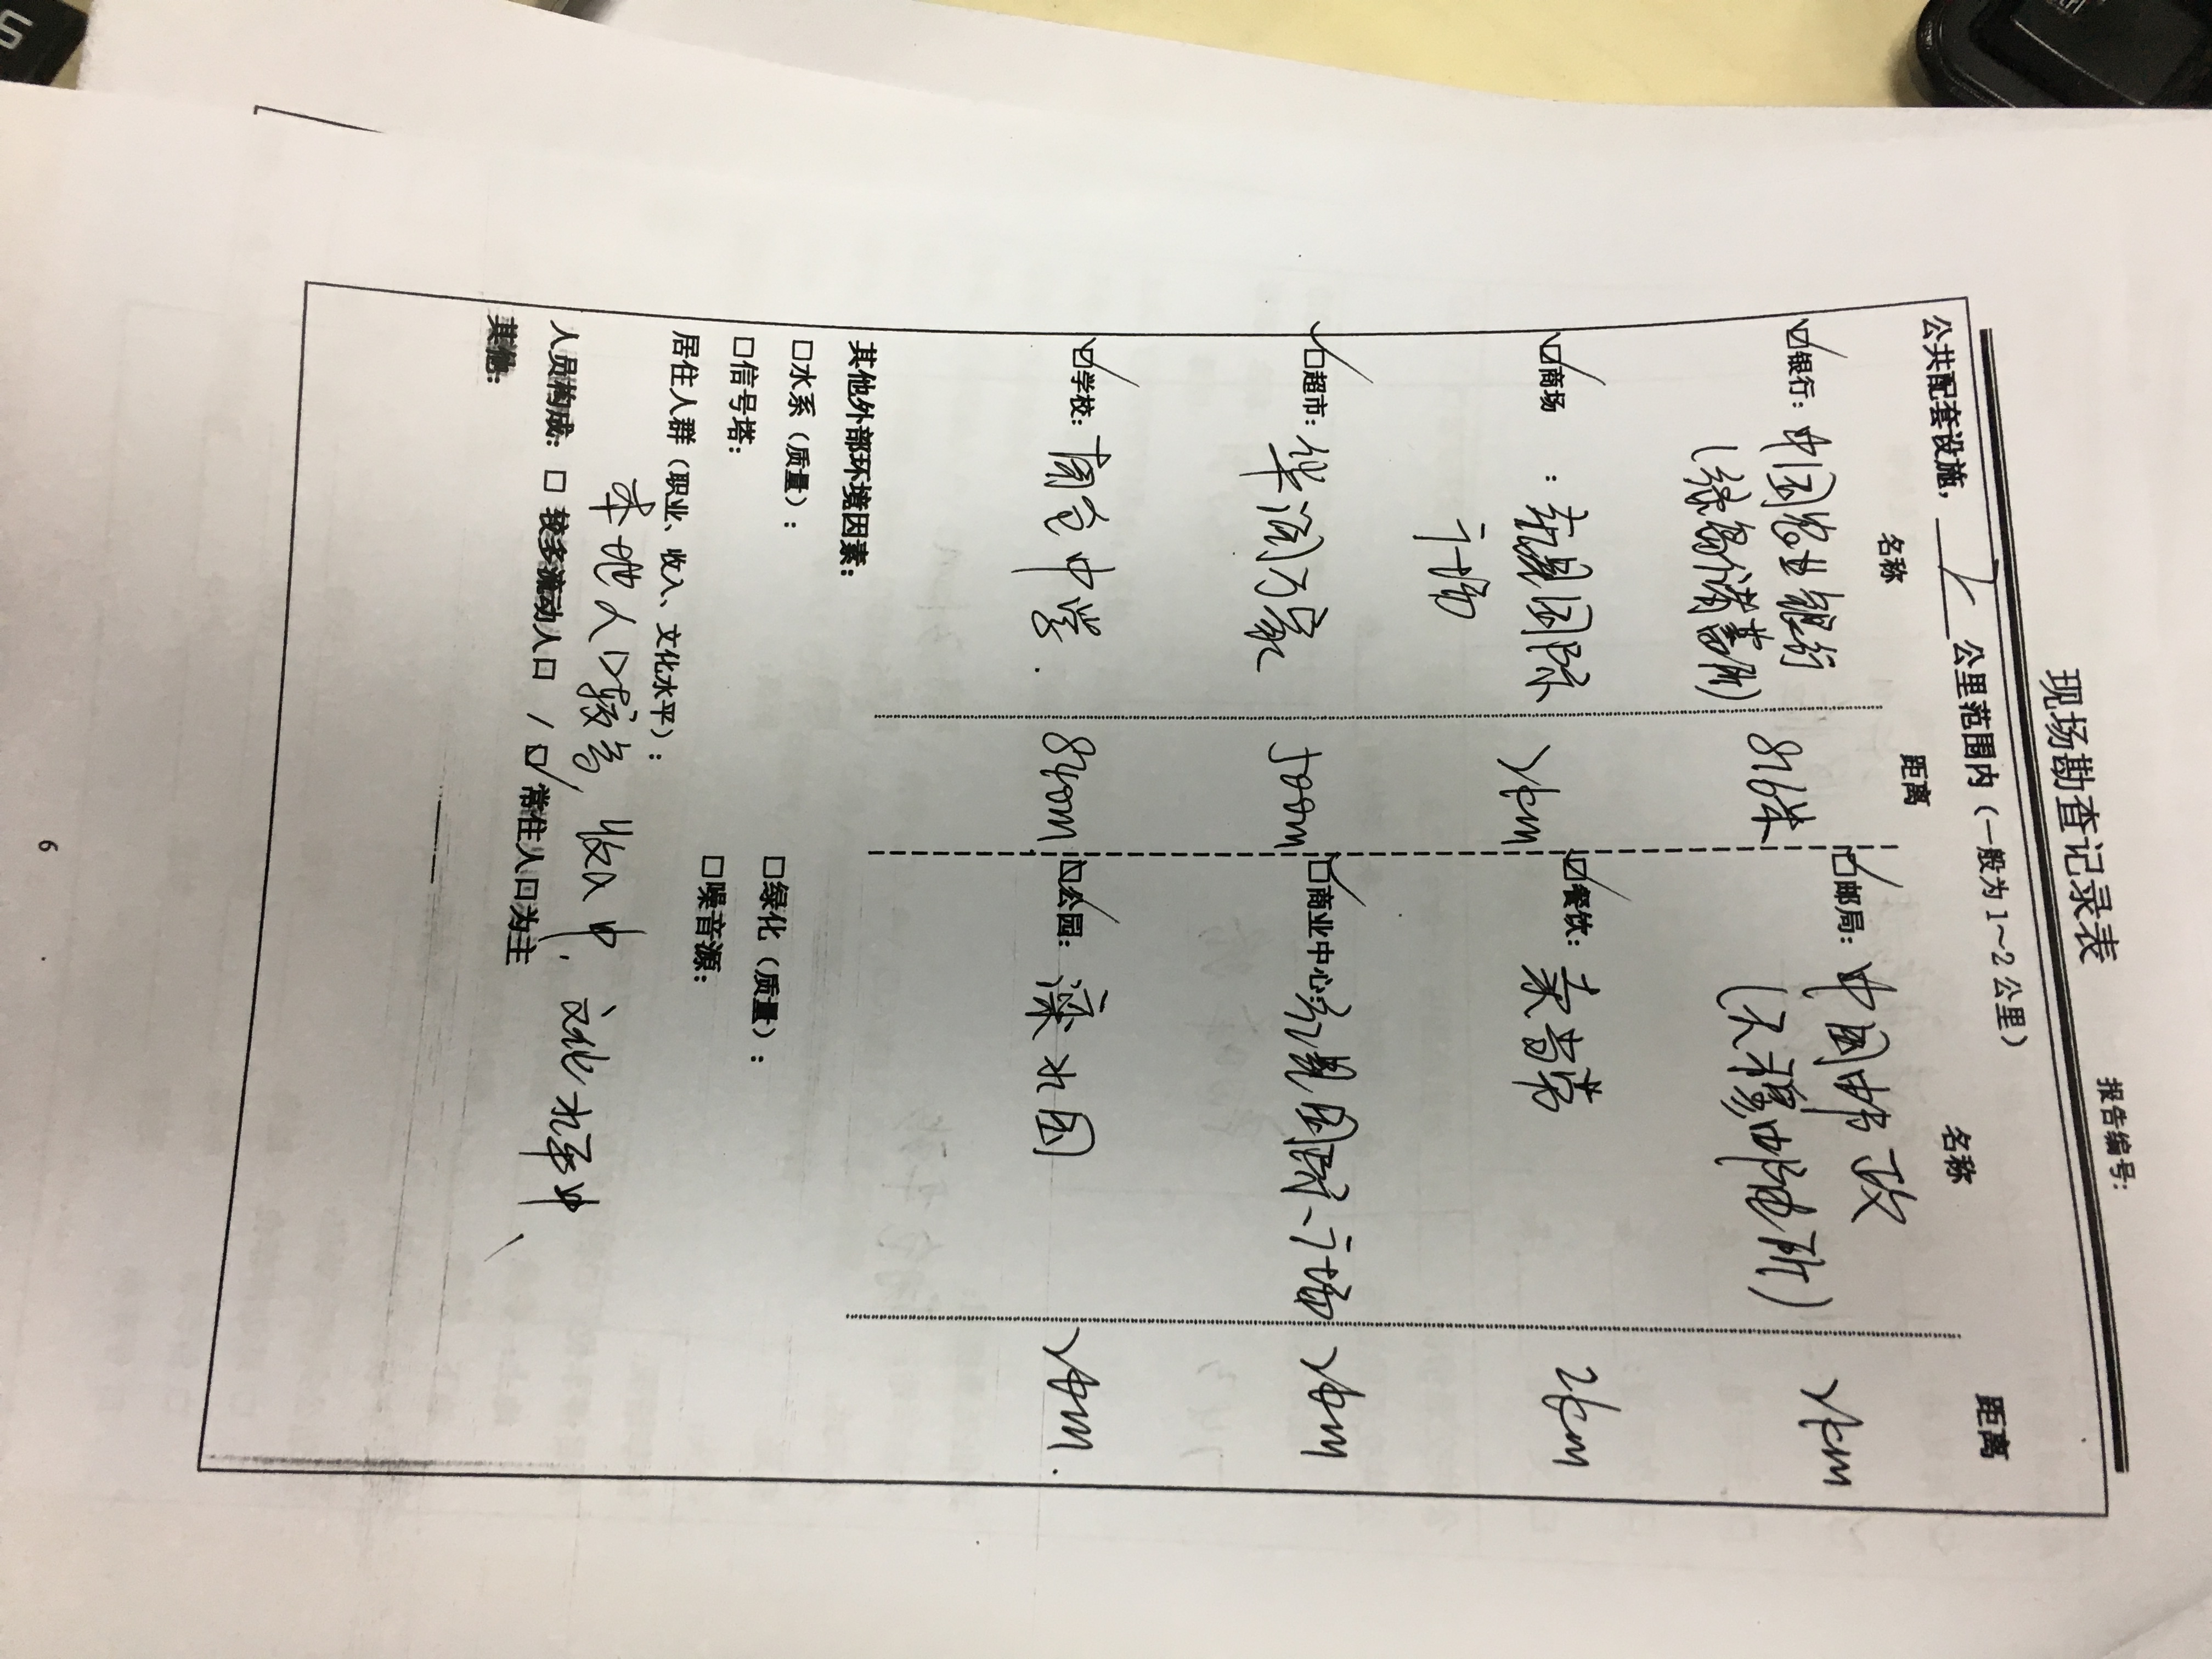 现场勘查记录表
报告编号：
公共配套设施，2公里范围内（一般为1～2公里）
名称 距离 名称 距离
☑银行：中国农业银行 816米 ☑邮局：中国邮政 2km
（储蓄所） （邮储所）
☑商场：国际 2km ☑餐饮：麦当劳 2km
广场
☑超市：华润万家 500m ☑商业中心 国际广场 2km
☑学校：中学 840m ☑公园：梁水园 2km
其他外部环境因素：
□水系（质量）： □绿化（质量）：
□信号塔： □噪音源：
居住人群（职业、收入、文化水平）：
本地人口较多，收入中，文化水平中、
人员构成：□ 较多流动人口 / ☑常住人口为主
其他：
6